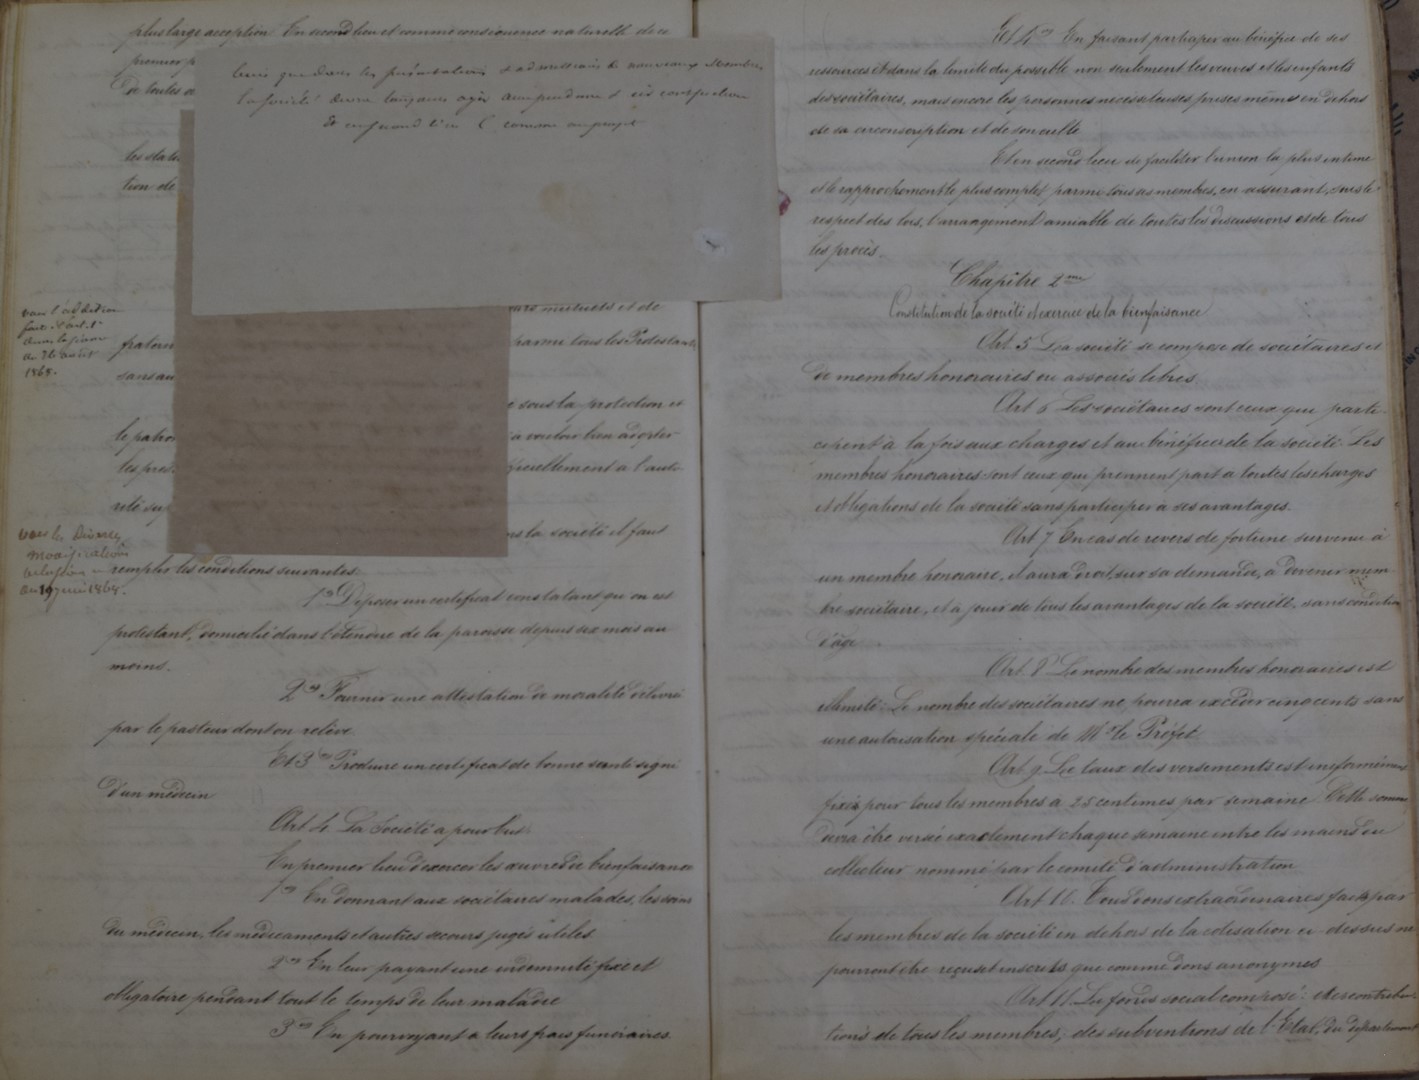 plus large acception. En second lieu et comme conséquence naturelle de ce
premier p
de toutes
les présentations et admissions de nouveaux Membres
la société devra toujours agir
les statu
tion de
voir l'addition
faite à l'art. 1er
dans la séance
du 26 août
1868.
urs mutuels et de
fratern
parmi tous les Protestants
sans au
sous la protection et
le patron
à vouloir bien adopter
les pres
ficiellement à l'auto
rité su
la société il faut
voir les diverses
modifications
au 19 juin 1868.
remplir les conditions suivantes:
1.° Déposer un certificat constatant qu'on est
protestant, domicilié dans l'étendue de la paroisse depuis six mois au
moins.
2.° Fournir une attestation de moralité délivrée
par le pasteur dont on relève.
Et 3.° Produire un certificat de bonne santé signé
d'un médecin
Art. 4. La Société a pour but:
En premier lieu d'exercer les œuvres de bienfaisance
1.° En donnant aux sociétaires malades, les soins
du médecin, les médicaments et autres secours jugés utiles
2.° En leur payant une indemnité fixe et
obligatoire pendant tout le temps de leur maladie
3.° En pourvoyant à leurs frais funéraires.
Et 4.° En faisant participer au bénéfice de ses
ressources et dans la limite du possible non seulement les veuves et les enfants
des sociétaires, mais encore les personnes nécessiteuses prises même en dehors
de sa circonscription et de son culte
Et en second lieu de faciliter l'union la plus intime
et le rapprochement le plus complet parmi tous ses membres, en assurant, sous le
respect des lois, l'arrangement amiable de toutes les discussions et de tous
les procès.
Chapitre 2me
Constitution de la société et exercice de la bienfaisance
Art. 5 La société se compose de sociétaires et
de membres honoraires ou associés libres.
Art. 6 Les sociétaires sont ceux qui parti-
cipent à la fois aux charges et au bénéfice de la société. Les
membres honoraires sont ceux qui prennent part à toutes les charges
et obligations de la société sans participer à ses avantages.
Art. 7 En cas de revers de fortune survenu à
un membre honoraire, il aura droit, sur sa demande, à devenir mem-
bre sociétaire, et à jouir de tous les avantages de la société, sans condition
d'âge.
Art. 8 Le nombre des membres honoraires est
illimité. Le nombre des sociétaires ne pourra excéder cinq cents sans
une autorisation spéciale de Mr. le Préfet
Art. 9. Le taux des versements est uniformément
fixé pour tous les membres à 25 centimes par semaine. Cette somme
devra être versée exactement chaque semaine entre les mains du
collecteur nommé par le comité d'administration
Art. 10. Tous dons extraordinaires faits par
les membres de la société en dehors de la cotisation ci-dessus ne
pourront être reçus et inscrits que comme dons anonymes
Art. 11. Le fonds social composé: des contribu-
tions de tous les membres, des subventions de l'Etat, du département